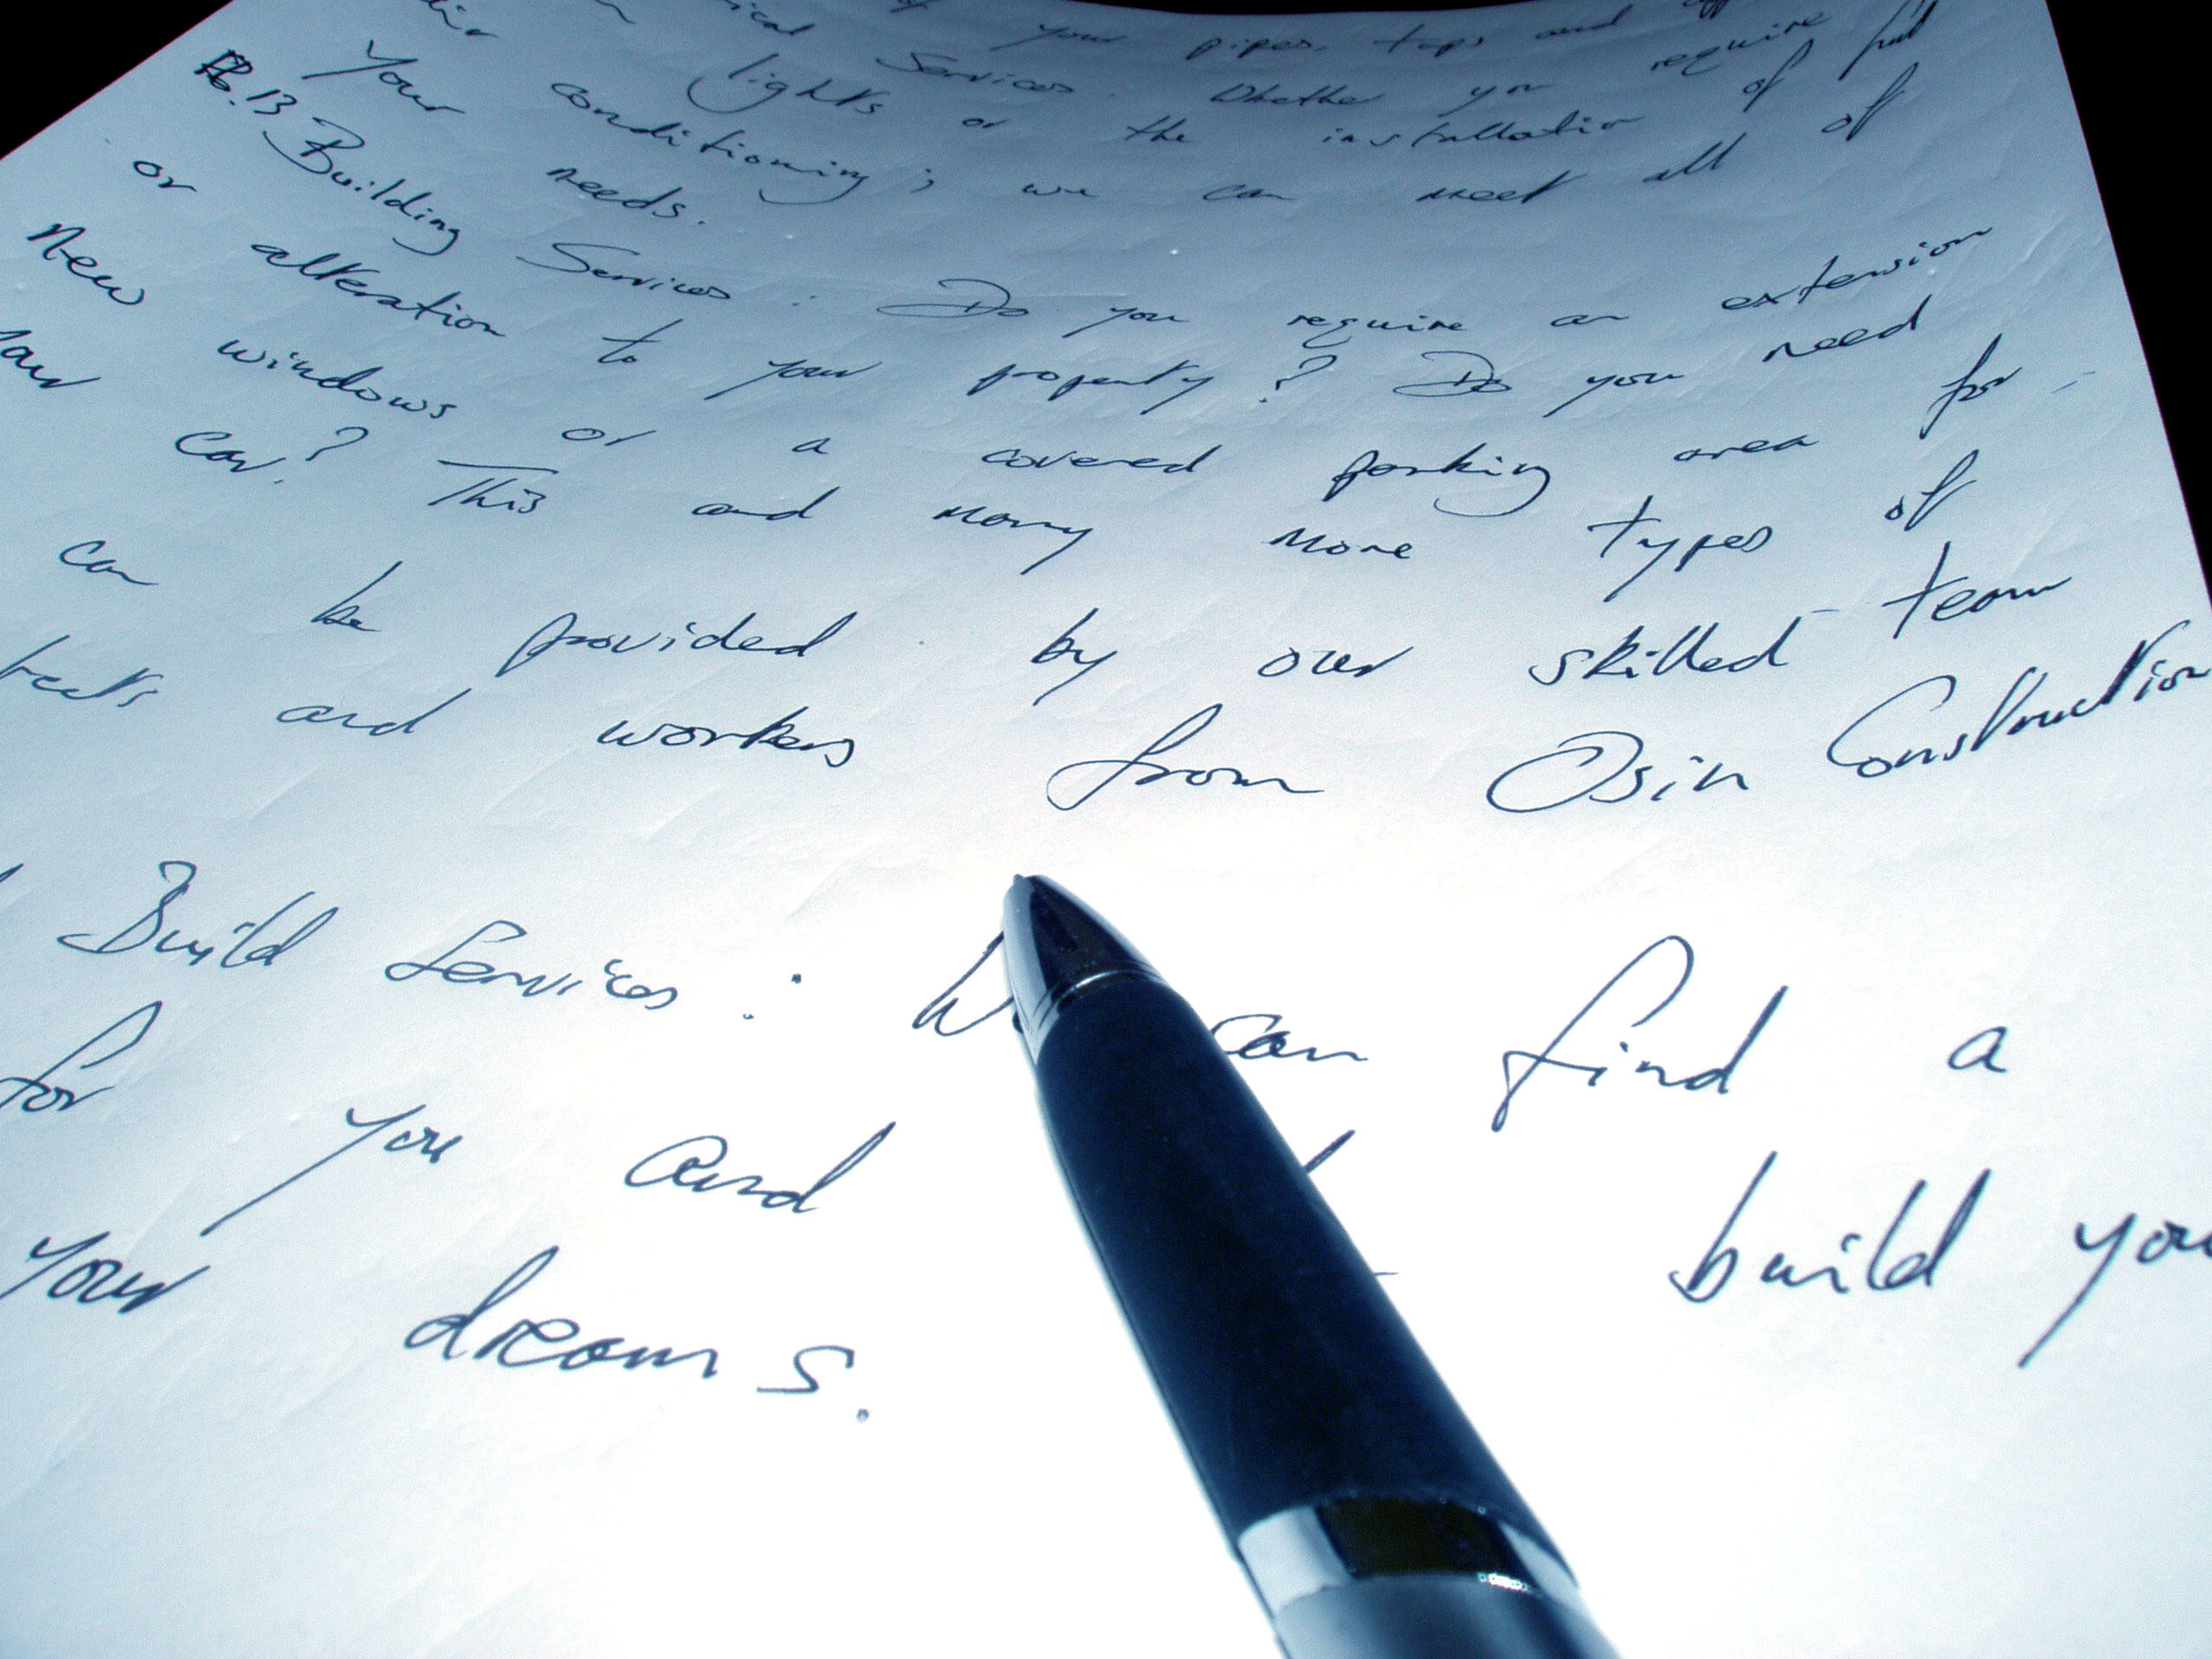 your pipes, taps and
Services. Whether you require
lights or the installation of full
air conditioning; we can meet all of
your needs.
13 Building Services: Do you require an extension
or alteration to your property? Do you need
new windows or a covered parking area for
your car? This and many more types of
can be provided by our skilled team
and workers from Osin Construction
Build Services: can find a
for you and build you
your dreams.